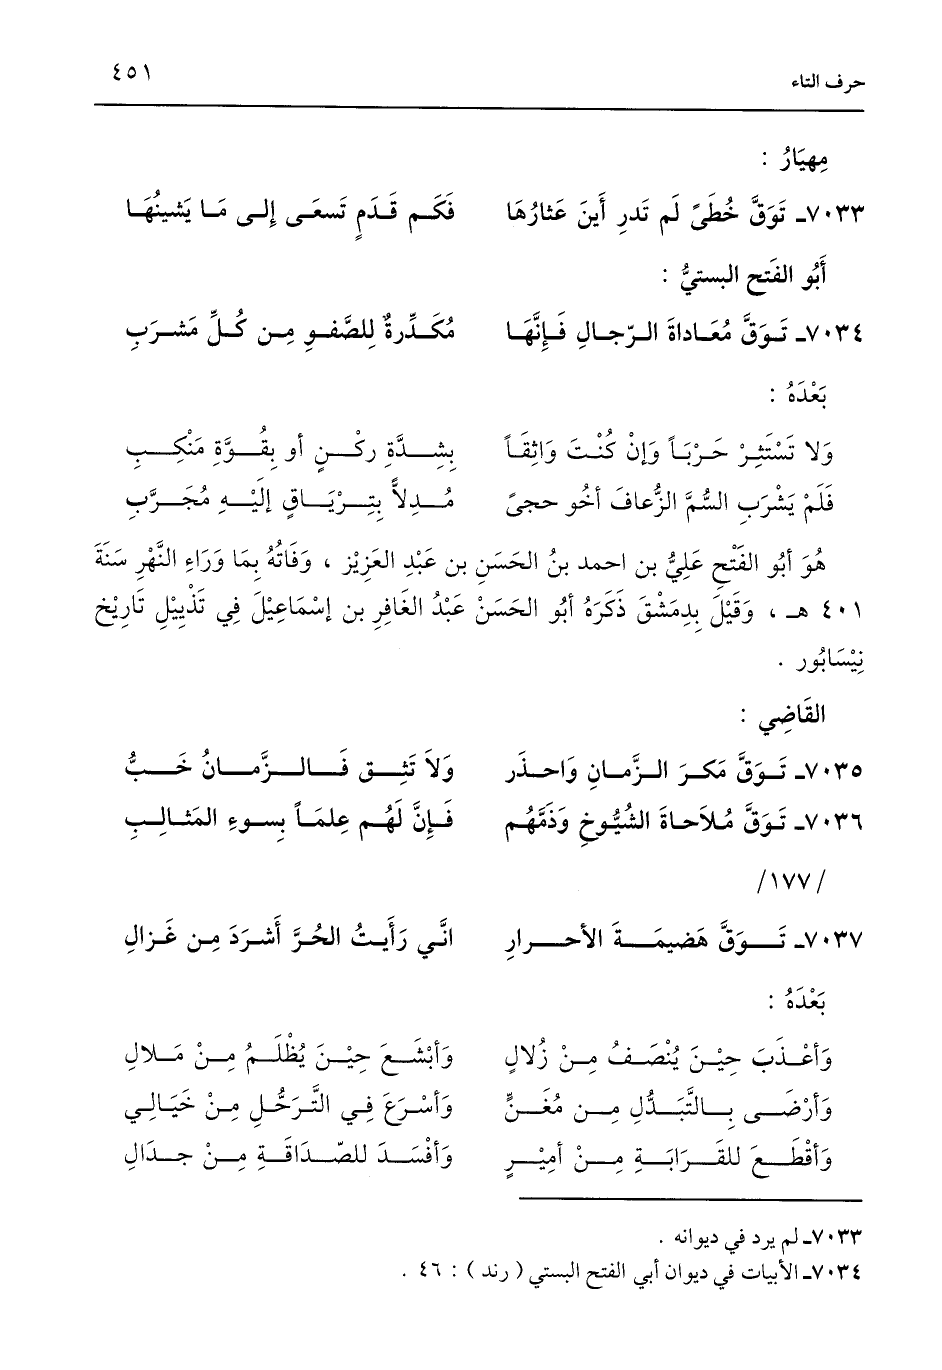 حرف التاء ٤٥١
مِهيَارُ :
٧٠٣٣ـ تَوَقَّ خُطَىً لَم تَدرِ أَينَ عَثارُهَا فَكَم قَدَمٍ تَسعَى إِلى مَا يَشينُهَا
أَبُو الفَتحِ البستيُّ :
٧٠٣٤ـ تَوَقَّ مُعَاداةَ الرّجالِ فَإِنَّهَا مُكَدِّرةٌ لِلصَّفوِ مِن كُلِّ مَشرَبِ
بَعْدَهُ :
وَلا تَسْتَثِرْ حَرْبَاً وَإنْ كُنْتَ وَاثِقَاً بِشِدَّةِ ركْنٍ أو بِقُوَّةِ مَنْكِبِ
فَلَمْ يَشْرَبِ السُّمَّ الزُّعافَ أخُو حجىً مُدِلاًّ بِتِرْيَاقٍ إلَيْهِ مُجَرَّبِ
هُوَ أبُو الفَتْحِ عَلِيُّ بن احمد بنُ الحَسَنِ بن عَبْدِ العَزِيْزِ ، وَفَاتُهُ بِمَا وَرَاءِ النَّهْرِ سَنَةَ
٤٠١ هـ ، وَقِيْلَ بِدِمَشْقَ ذَكَرَهُ أبُو الحَسَنْ عَبْدُ الغَافِرِ بن إسْمَاعِيْلَ فِي تَذْيِيْلِ تَارِيْخِ
نِيْسَابُور .
القَاضِي :
٧٠٣٥ـ تَوَقَّ مَكرَ الزَّمانِ وَاحذَر وَلاَ تَثِق فَالزَّمانُ خَبُّ
٧٠٣٦ـ تَوَقَّ مُلاَحاةَ الشُّيُوخِ وَذَمَّهُم فَإِنَّ لَهُم عِلمَاً بِسوءِ المَثالِبِ
/١٧٧/
٧٠٣٧ـ تَوَقَّ هَضيمَةَ الأَحرارِ انَّي رَأَيتُ الحُرَّ أَشرَدَ مِن غَزالِ
بَعْدَهُ :
وَأعْذَبَ حِيْنَ يُنْصَفُ مِنْ زُلالٍ وَأبْشَعَ حِيْنَ يُظْلَمُ مِنْ مَلالِ
وَأرْضَى بِالتَّبَدُّلِ مِن مُغَنٍّ وَأسْرَعَ فِي التَّرَحُّلِ مِنْ خَيَالِي
وَأقْطَعَ للقَرَابَةِ مِنْ أمِيْرٍ وَأفْسَدَ للصّدَاقَةِ مِنْ جِدَالِ
٧٠٣٣ـ لم يرد في ديوانه .
٧٠٣٤ـ الأبيات في ديوان أبي الفتح البستي ( رند ) : ٤٦ .